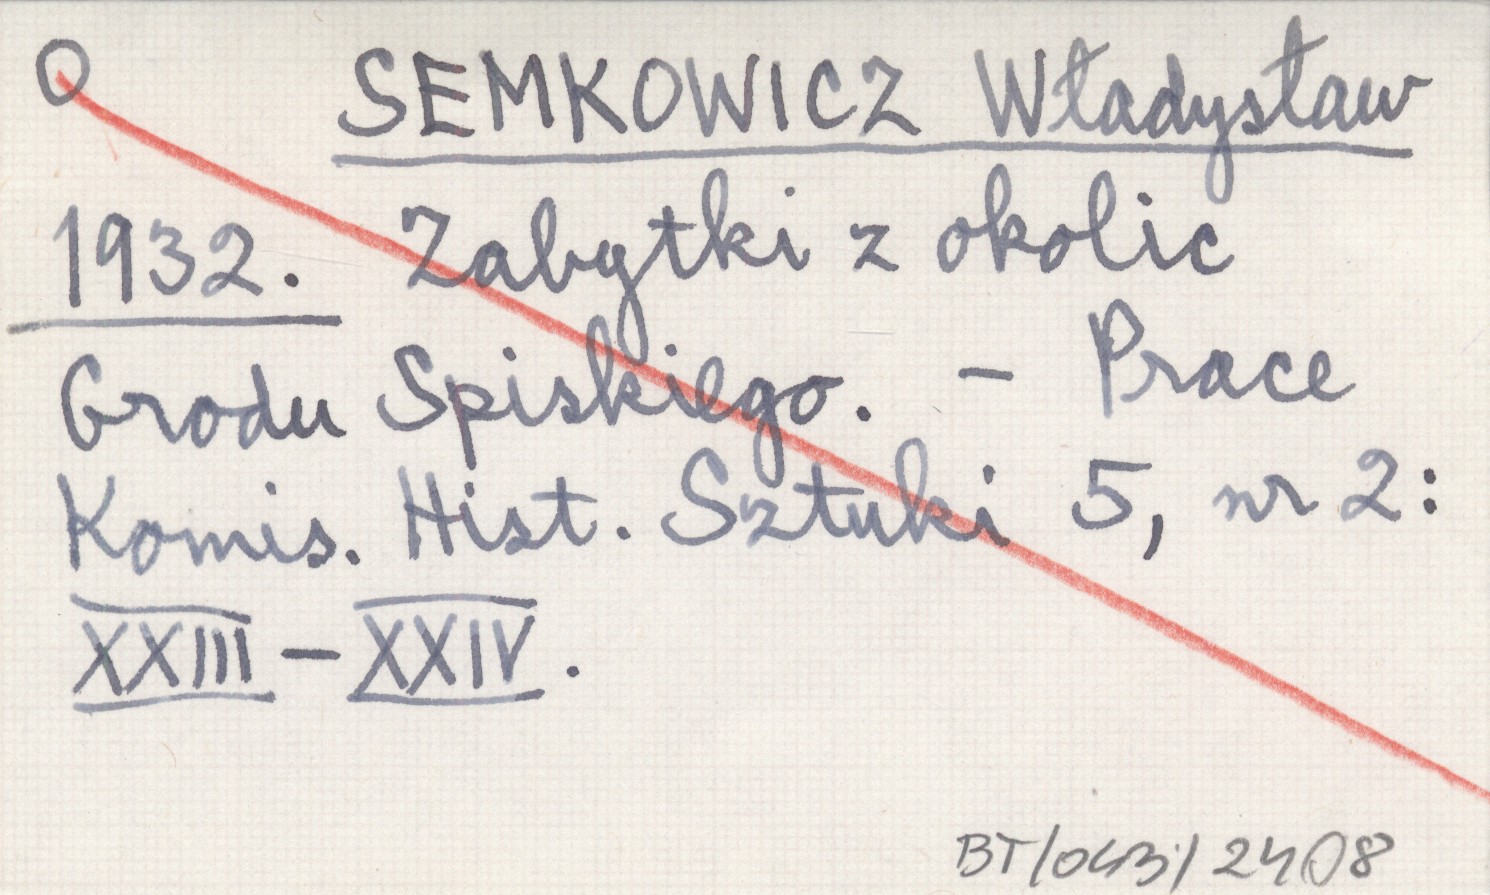 O SEMKOWICZ Władysław
1932. Zabytki z okolic
Grodu Spiskiego. – Prace
Komis. Hist. Sztuki 5, nr 2:
XXIII – XXIV.
BT/043/2408